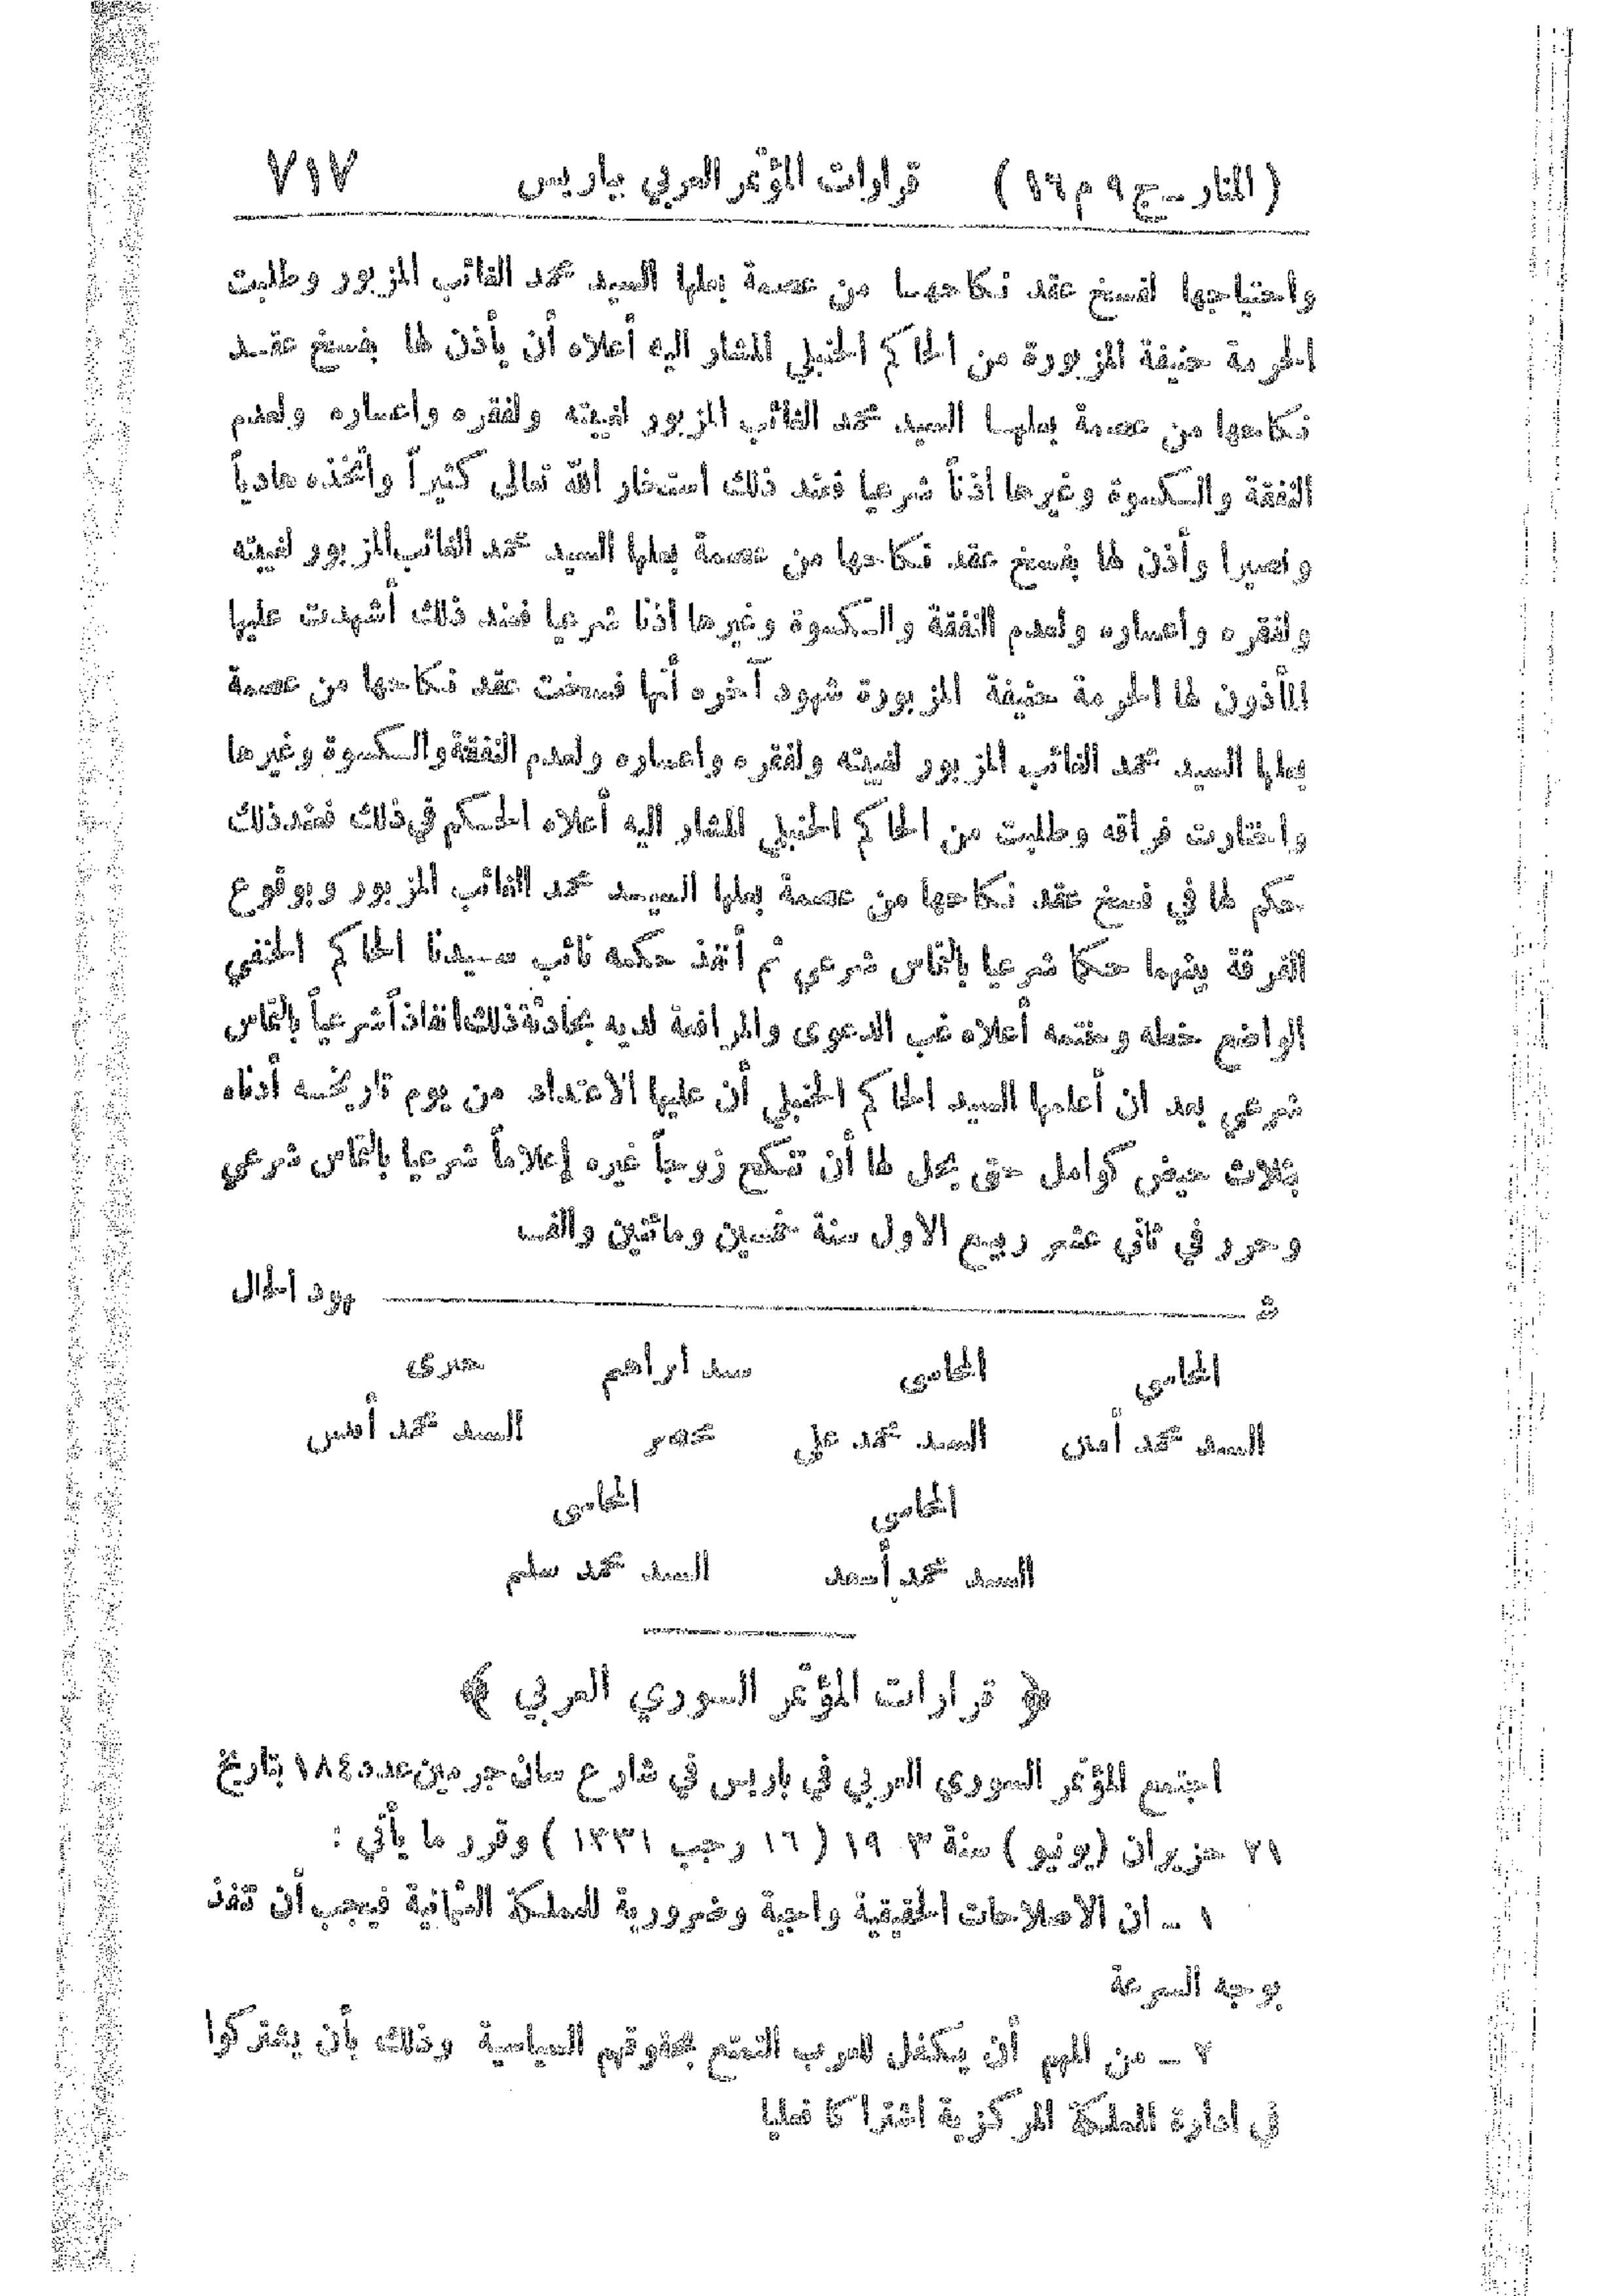 (المنار ـ ج ٩ م ١٦) قرارات المؤتمر العربي بباريس ٧١٧
واحتياجها لفسخ عقد نكاحها من عصمة بعلها السيد محمد الغائب المزبور وطلبت
الحرمة حنيفة المزبورة من الحاكم الحنبلي المشار اليه أعلاه أن يأذن لها بفسخ عقد
نكاحها من عصمة بعلها السيد محمد الغائب المزبور لغيبته ولفقره واعساره ولعدم
النفقة والكسوة وغيرها اذناً شرعيا فعند ذلك استخار الله تعالى كثيراً واتخذه هادياً
ونصيرا وأذن لها بفسخ عقد نكاحها من عصمة بعلها السيد محمد الغائب المزبور لغيبته
ولفقره واعساره ولعدم النفقة والكسوة وغيرها اذنا شرعيا فعند ذلك أشهدت عليها
المأذون لها الحرمة حنيفة المزبورة شهود آخره أنها فسخت عقد نكاحها من عصمة
بعلها السيد محمد الغائب المزبور لغيبته ولفقره واعساره ولعدم النفقة والكسوة وغيرها
واختارت فراقه وطلبت من الحاكم الحنبلي المشار اليه أعلاه الحكم في ذلك فعند ذلك
حكم لها في فسخ عقد نكاحها من عصمة بعلها السيد محمد الغائب المزبور وبوقوع
الفرقة بينهما حكما شرعيا بالتماس شرعي ثم أنفذ حكمه نائب سيدنا الحاكم الحنفي
الواضع خطه وختمه أعلاه غب الدعوى والمرافعة لديه بحادثة ذلك انفاذاً شرعياً بالتماس
شرعي بعد ان أعلمها السيد الحاكم الحنبلي أن عليها الاعتداد من يوم تاريخه أدناه
بثلاث حيض كوامل حتى يحل لها أن تنكح زوجاً غيره إعلاماً شرعيا بالتماس شرعي
وحرر في ثاني عشر ربيع الاول سنة خمسين ومائتين والف
شـ ـهود الحال
المحامي المحامى سيد ابراهيم صبرى
السيد محمد أمين السيد محمد علي محضر السيد محمد أنيس
المحامى المحامى
السيد محمد أسعد السيد محمد سليم
﴿ قرارات المؤتمر السوري العربي ﴾
اجتمع المؤتمر السوري العربي في باريس في شارع سان جرمين عدد ١٨٤ بتاريخ
٢١ حزيران (يونيو) سنة ١٩٠٣ (١٦ رجب ١٣٣١) وقرر ما يأتي :
١ ـ ان الاصلاحات الحقيقية واجبة وضرورية للمملكة العثمانية فيجب أن تنفذ
بوجه السرعة
٢ ـ من المهم أن يكفل للعرب التمتع بحقوقهم السياسية وذلك بأن يشتركوا
في ادارة المملكة المركزية اشتراكا فعليا